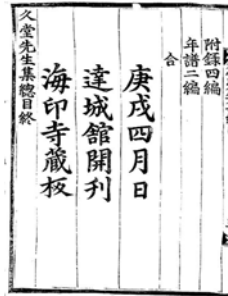 附錄四編
年譜二編
合
庚戌四月日
達城舘開刊
海印寺藏板
久堂先生集總目終